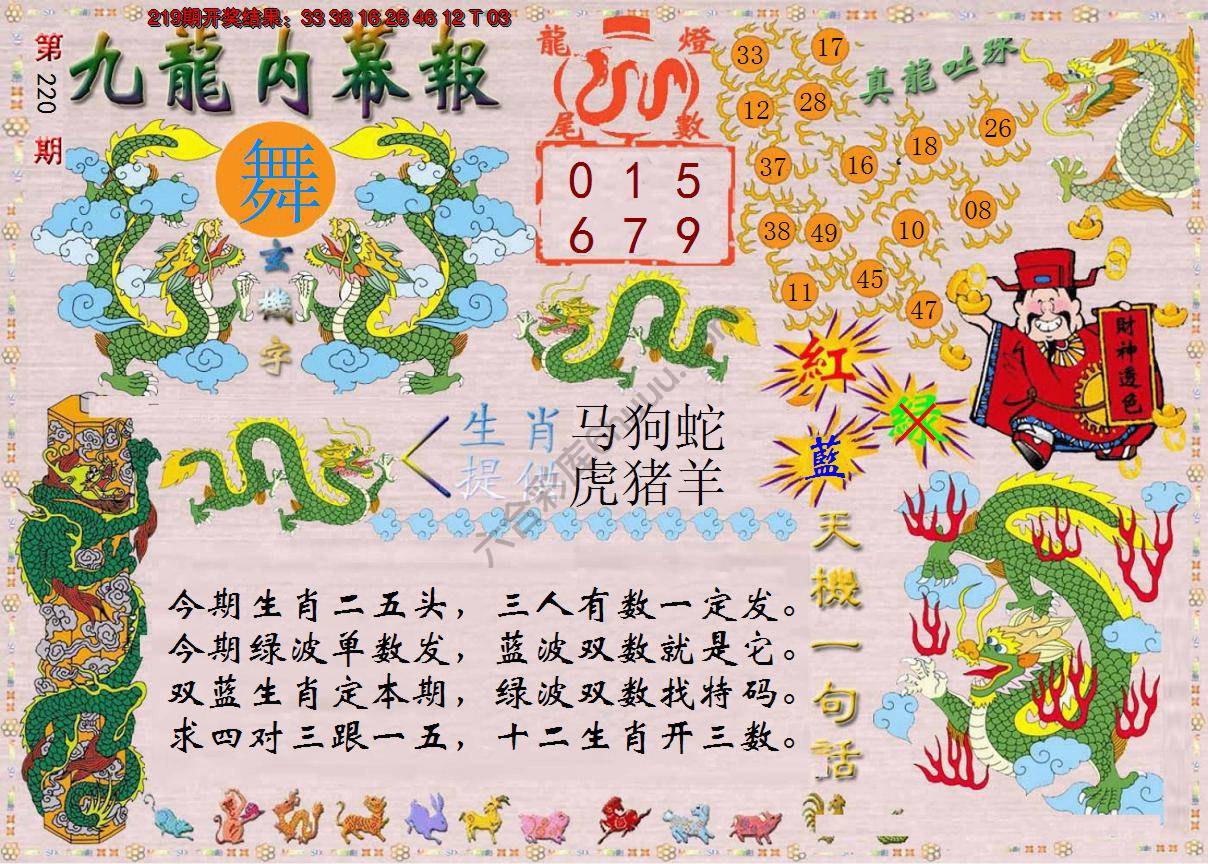 219期开奖结果：33 38 16 26 46 12 T 03
第220期
九龍内幕報
舞
玄機字
龍燈
尾數
0 1 5
6 7 9
真龍吐珠
33 17
12 28
37 16 18 26
38 49 10 08
11 45 47
財神透色
紅
绿
藍
生肖 马狗蛇
提供 虎猪羊
天機一句話
今期生肖二五头，三人有数一定发。
今期绿波单数发，蓝波双数就是它。
双蓝生肖定本期，绿波双数找特码。
求四对三跟一五，十二生肖开三数。